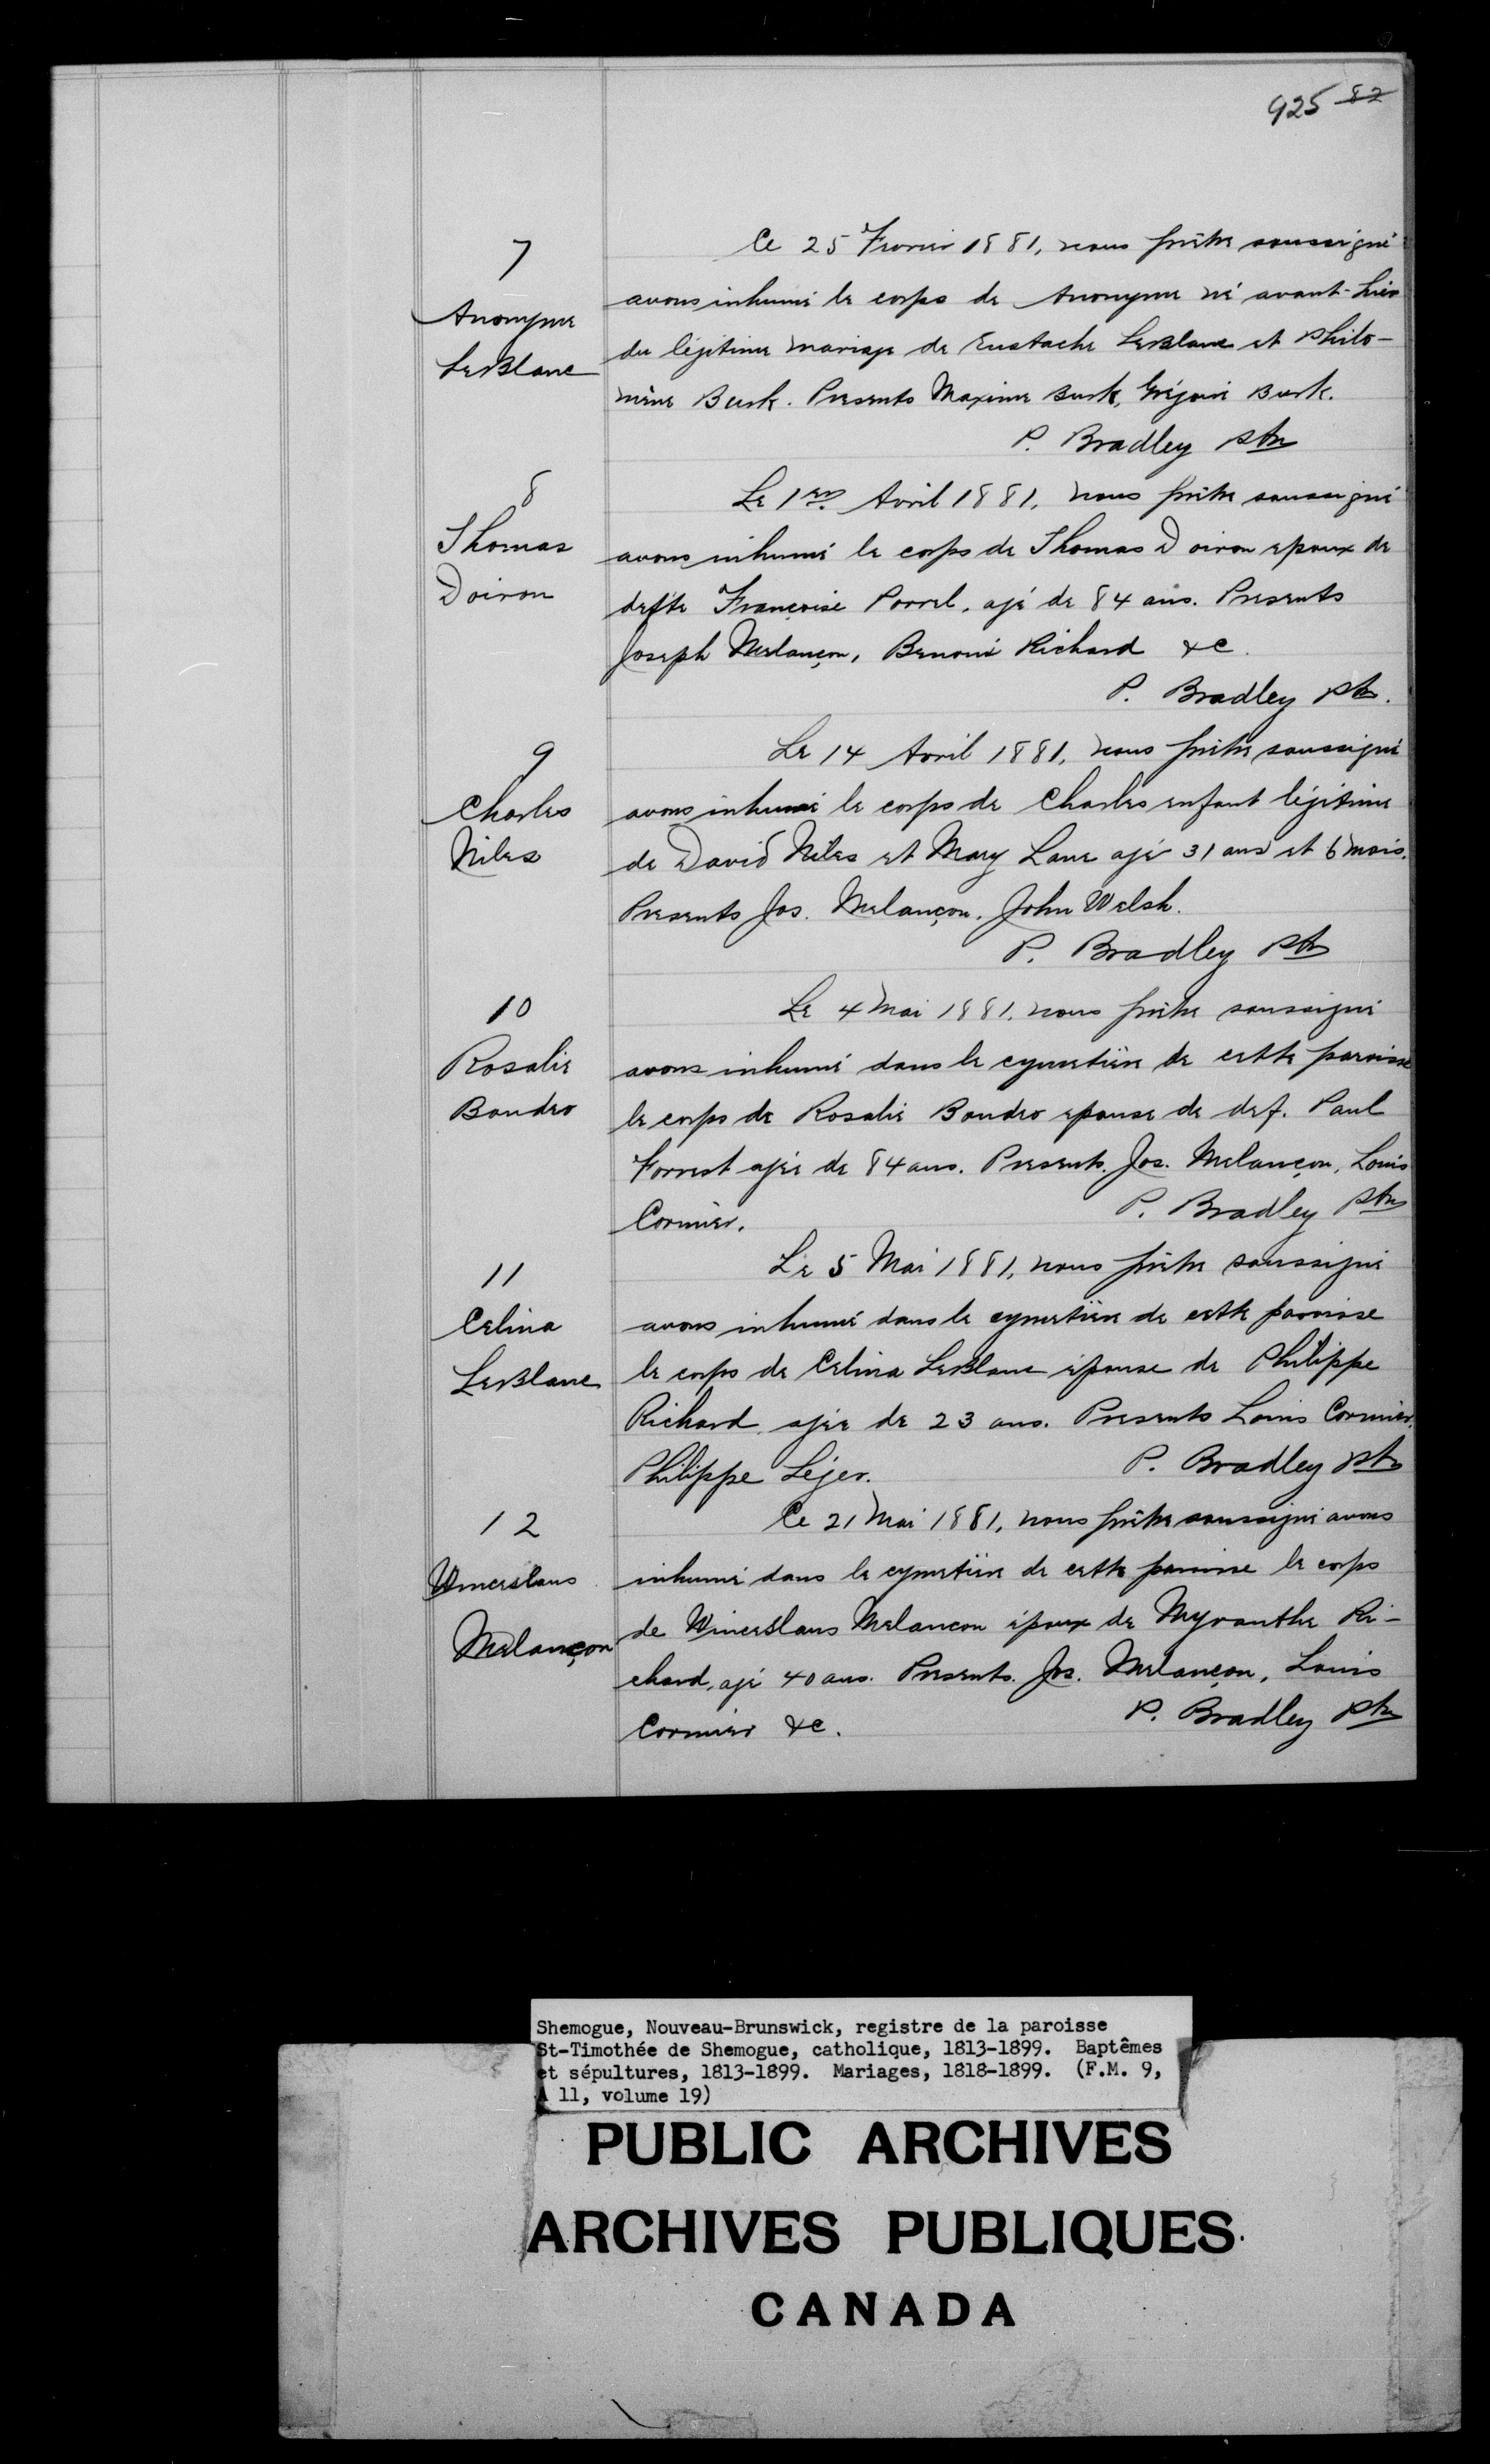 925 82
7
Anonyme
LeBlanc
Ce 25 Fevrier 1881, nous prêtre soussigné
avons inhumé le corps de Anonyme né avant-hier
du légitime mariage de Eustache LeBlanc et Philo-
mène Burk. Presents Maxime Burk, Grégoire Burk.
P. Bradley Ptre
8
Thomas
Doiron
Le 1er Avril 1881, nous prêtre soussigné
avons inhumé le corps de Thomas Doiron epoux de
defte Françoise Porrel, agé de 84 ans. Presents
Joseph Melançon, Benoni Richard &c.
P. Bradley Ptre.
9
Charles
Niles
Le 14 Avril 1881, nous prêtre soussigné
avons inhumé le corps de Charles enfant légitime
de David Niles et Mary Lane agé 31 ans et 6 mois.
Presents Jos. Melançon, John Welsh.
P. Bradley Ptre
10
Rosalie
Boudro
Le 4 Mai 1881, nous prêtre soussigné
avons inhumé dans le cymetière de cette paroisse
le corps de Rosalie Boudro epouse de def. Paul
Forrest agée de 84 ans. Presents. Jos. Melançon, Louis
Cormier.
P. Bradley Ptre
11
Celina
LeBlanc
Le 5 Mai 1881, nous prêtre soussigné
avons inhumé dans le cymetière de cette paroisse
le corps de Celina LeBlanc épouse de Philippe
Richard, agée de 23 ans. Presents Louis Cormier,
Philippe Léger.
P. Bradley Ptre
12
Winceslaus
Melançon
Ce 21 Mai 1881, nous prêtre soussigné avons
inhumé dans le cymetière de cette paroisse le corps
de Winceslaus Melancon époux de Myranthe Ri-
chard, agé 40 ans. Presents. Jos. Melançon, Louis
Cormier &c.
P. Bradley Ptre
Shemogue, Nouveau-Brunswick, registre de la paroisse
St-Timothée de Shemogue, catholique, 1813-1899. Baptêmes
et sépultures, 1813-1899. Mariages, 1818-1899. (F.M. 9,
A 11, volume 19)
PUBLIC ARCHIVES
ARCHIVES PUBLIQUES
CANADA